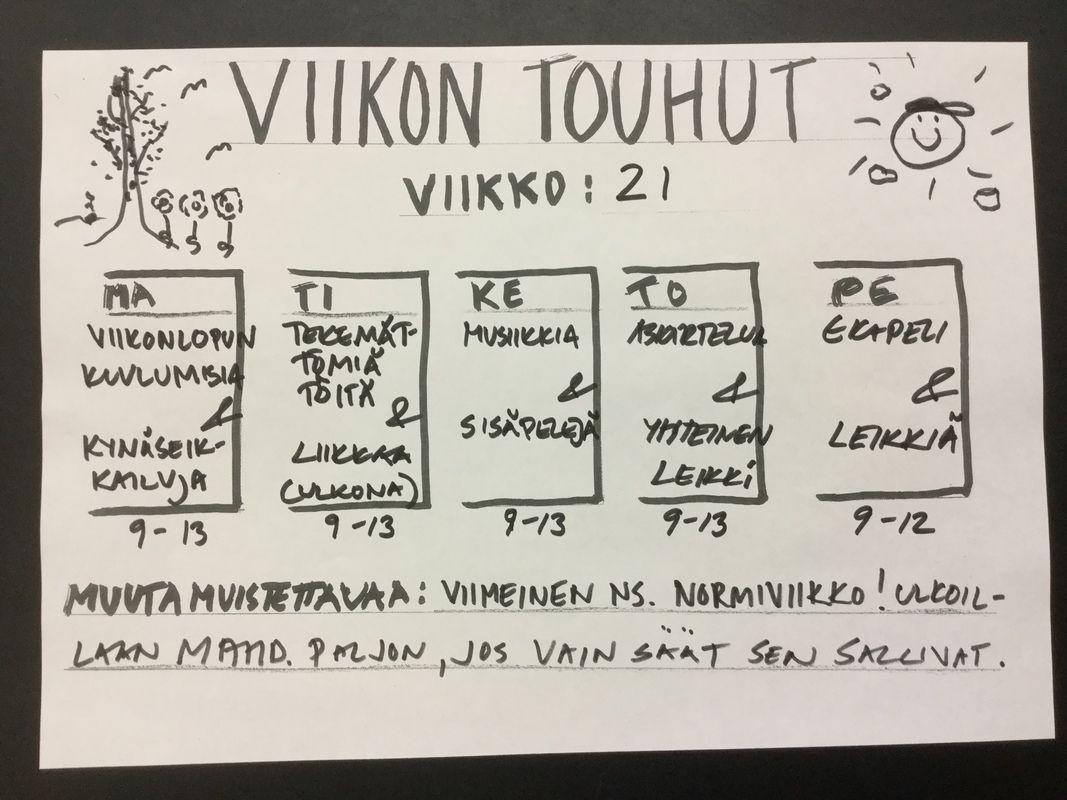 VIIKON TOUHUT
VIIKKO: 21
MA
VIIKONLOPUN
KUULUMISIA
&
KYNÄSEIK-
KAILUJA
9-13
TI
TEKEMÄT-
TÖMIÄ
TÖITÄ
&
LIIKKAA
(ULKONA)
9-13
KE
MUSIIKKIA
&
SISÄPELEJÄ
9-13
TO
ASKARTELUA
&
YHTEINEN
LEIKKI
9-13
PE
EKAPELI
&
LEIKKIÄ
9-12
MUUTA MUISTETTAVAA: VIIMEINEN NS. NORMIVIIKKO! ULKOIL-
LAAN MAHD. PALJON, JOS VAIN SÄÄT SEN SALLIVAT.